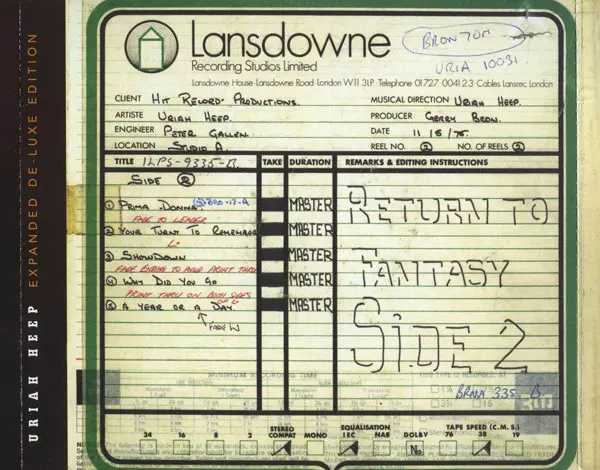 URIAH HEEP EXPANDED DE-LUXE EDITION
Lansdowne
Recording Studios Limited
Lansdowne House · Lansdowne Road · London W11 3LP Telephone 01 727-0041 2 3 Cables Lansrec London
BRONTOM
URIA 10031
CLIENT HIT RECORD PRODUCTIONS.
MUSICAL DIRECTION URIAH HEEP.
ARTISTE URIAH HEEP.
PRODUCER GERRY BRON.
ENGINEER PETER GALLEN.
DATE 11/5/75.
LOCATION STUDIO A.
REEL NO. 2 NO. OF REELS 2
TITLE ILPS-9335-B. TAKE DURATION REMARKS & EDITING INSTRUCTIONS
SIDE 2
1 PRIMA DONNA MASTER
FADE TO LEADER
2 YOUR TURN TO REMEMBER MASTER
3 SHOWDOWN MASTER
FADE ENDING TO AVOID PRINT THRU
4 WHY DID YOU GO MASTER
PRINT THRU ON BOTH SIDES
5 A YEAR OR A DAY. MASTER
FADE IN
RETURN TO
FANTASY
SIDE 2
MINIMUM RECORDING TIME
BRNA 335. B
24 16 8 2 STEREO COMPAT MONO EQUALISATION IEC NAB DOLBY No TAPE SPEED (C.M.S.) 76 38 19